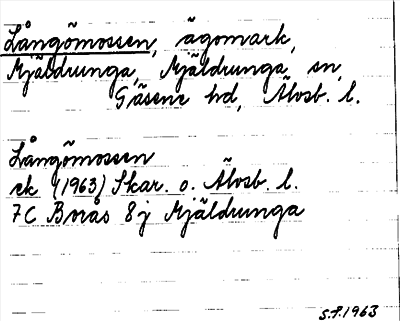 Långömossen, ägomark,
Mjäldrunga, Mjäldrunga sn,
Gäsene hd, Älvsb. l.
Långömossen
ek (1963) Skar. o. Älvsb. l.
7C Borås 8j Mjäldrunga
S.F. 1963